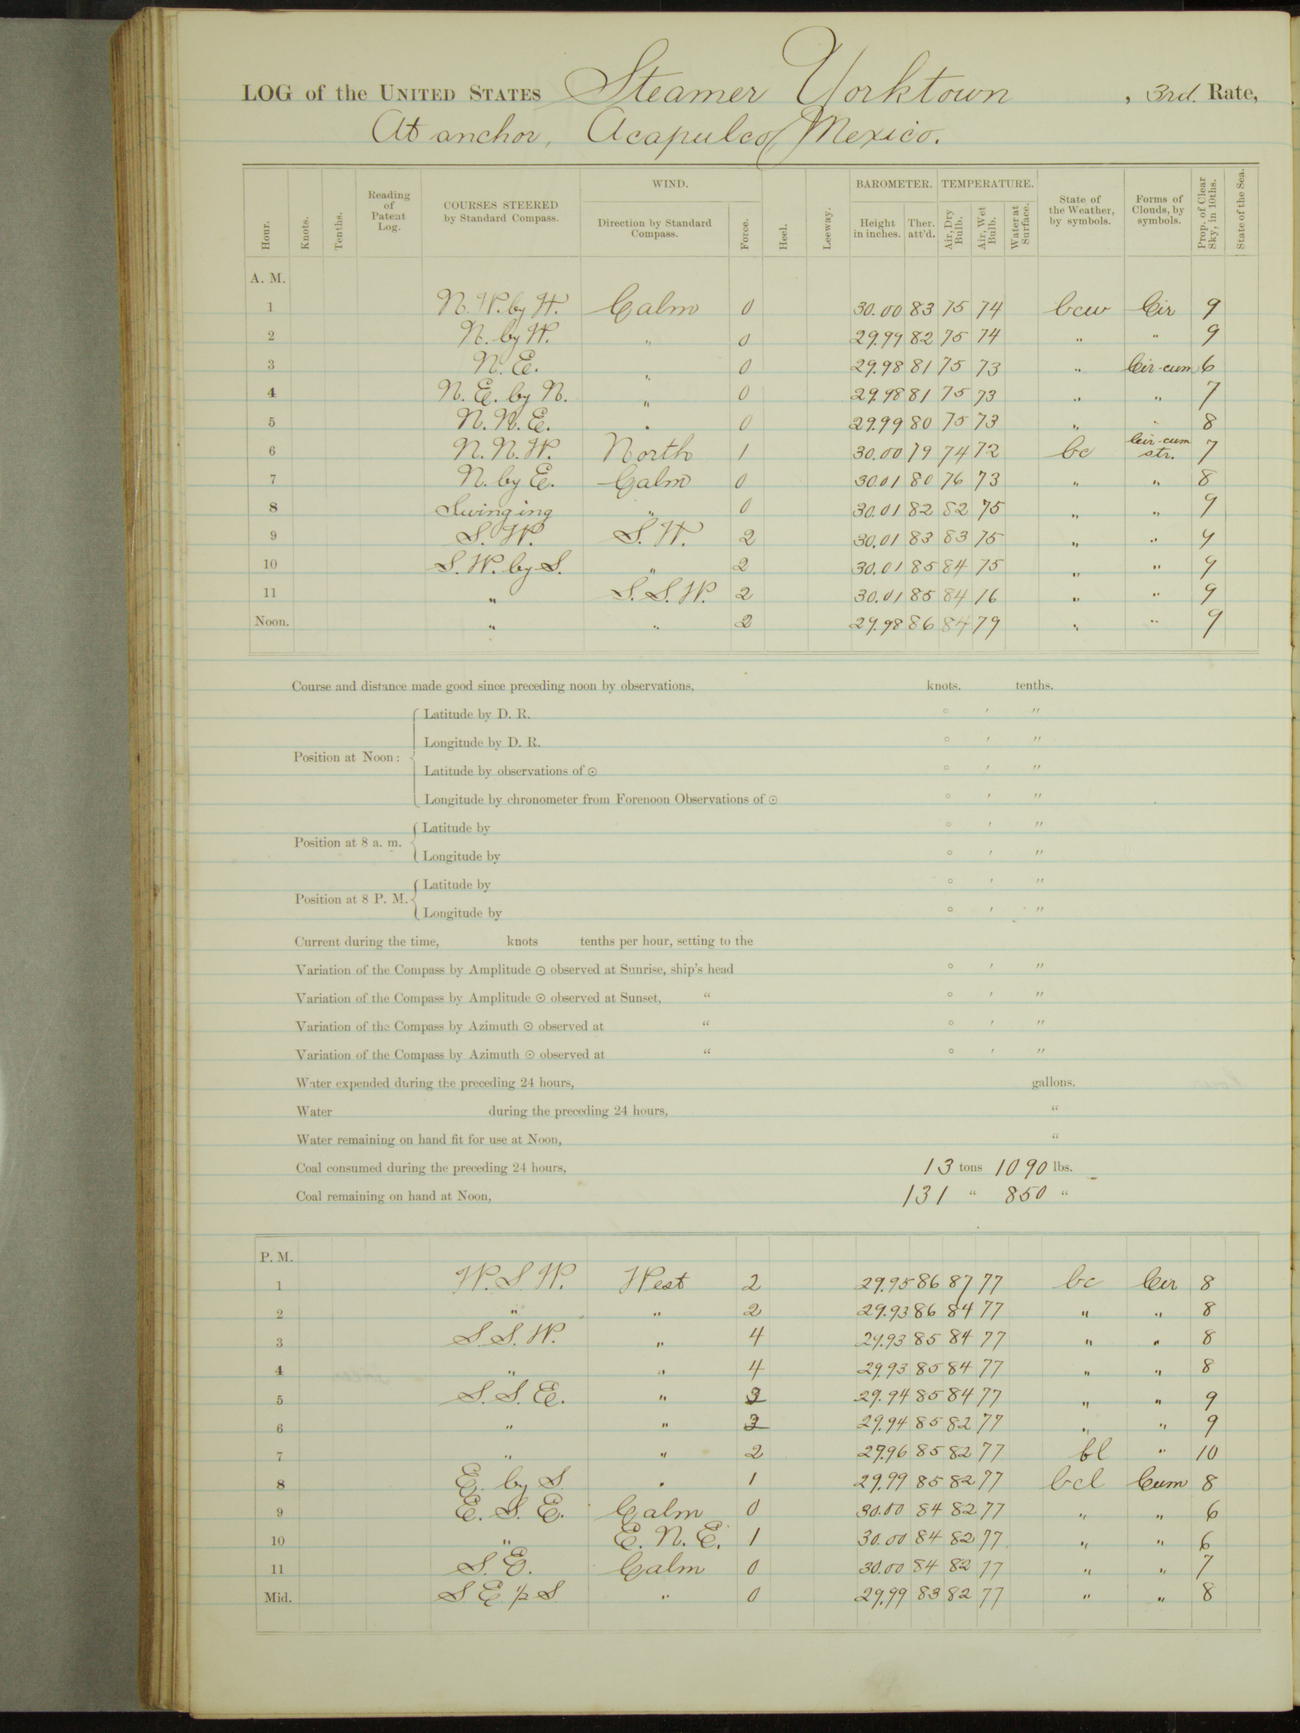 LOG of the UNITED STATES Steamer Yorktown , 3rd. Rate,
At anchor, Acapulco, Mexico.
Hour. Knots. Tenths. Reading of Patent Log. COURSES STEERED by Standard Compass. WIND. Direction by Standard Compass. Force. Heel. Leeway. BAROMETER. Height in inches. Ther. att'd. TEMPERATURE. Air, Dry Bulb. Air, Wet Bulb. Water at Surface. State of the Weather, by symbols. Forms of Clouds, by symbols. Prop. of Clear Sky, in 10ths. State of the Sea.
A. M.
1 N.W. by W. Calm 0 30.00 83 75 74 bcw Cir 9
2 N. by W. " 0 29.99 82 75 74 " " 9
3 N.E. " 0 29.98 81 75 73 " Cir-cum 6
4 N.E. by N. " 0 29.98 81 75 73 " " 7
5 N.N.E. " 0 29.99 80 75 73 " " 8
6 N.N.W. North 1 30.00 79 74 72 bc Cir-cum str. 7
7 N. by E. Calm 0 30.01 80 76 73 " " 8
8 Swinging " 0 30.01 82 82 75 " " 9
9 S.W. S.W. 2 30.01 83 83 75 " " 9
10 S.W. by S. " 2 30.01 85 84 75 " " 9
11 " S.S.W. 2 30.01 85 84 76 " " 9
Noon. " " 2 29.98 86 84 79 " " 9
Course and distance made good since preceding noon by observations, knots. tenths.
Position at Noon: Latitude by D. R. ° ′ ″
Longitude by D. R. ° ′ ″
Latitude by observations of ☉ ° ′ ″
Longitude by chronometer from Forenoon Observations of ☉ ° ′ ″
Position at 8 a. m. Latitude by ° ′ ″
Longitude by ° ′ ″
Position at 8 P. M. Latitude by ° ′ ″
Longitude by ° ′ ″
Current during the time, knots tenths per hour, setting to the
Variation of the Compass by Amplitude ☉ observed at Sunrise, ship's head ° ′ ″
Variation of the Compass by Amplitude ☉ observed at Sunset, " ° ′ ″
Variation of the Compass by Azimuth ☉ observed at " ° ′ ″
Variation of the Compass by Azimuth ☉ observed at " ° ′ ″
Water expended during the preceding 24 hours, gallons.
Water during the preceding 24 hours, "
Water remaining on hand fit for use at Noon, "
Coal consumed during the preceding 24 hours, 13 tons 1090 lbs.
Coal remaining on hand at Noon, 131 " 850 "
P. M.
1 W.S.W. West 2 29.95 86 87 77 bc Cir 8
2 " " 2 29.93 86 84 77 " " 8
3 S.S.W. " 4 29.93 85 84 77 " " 8
4 " " 4 29.93 85 84 77 " " 8
5 S.S.E. " 3 29.94 85 84 77 " " 9
6 " " 3 29.94 85 82 77 " " 9
7 " " 2 29.96 85 82 77 bl " 10
8 E. by S. " 1 29.99 85 82 77 bcl Cum 8
9 E.S.E. Calm 0 30.00 84 82 77 " " 6
10 " E.N.E. 1 30.00 84 82 77 " " 6
11 S.E. Calm 0 30.00 84 82 77 " " 7
Mid. S E ½ S " 0 29.99 83 82 77 " " 8